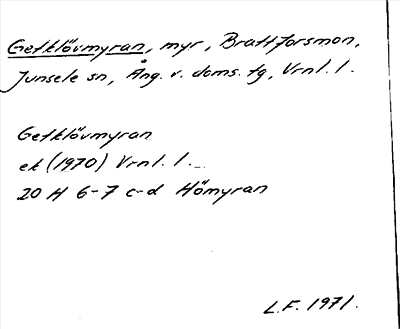 Getklövmyran, myr, Brattforsmon,
Junsele sn, Ång. v. doms. tg, Vrnl. l.
Getklövmyran
ek (1970) Vrnl. l.
20 H 6-7 c-d Hömyran
L.F. 1971.